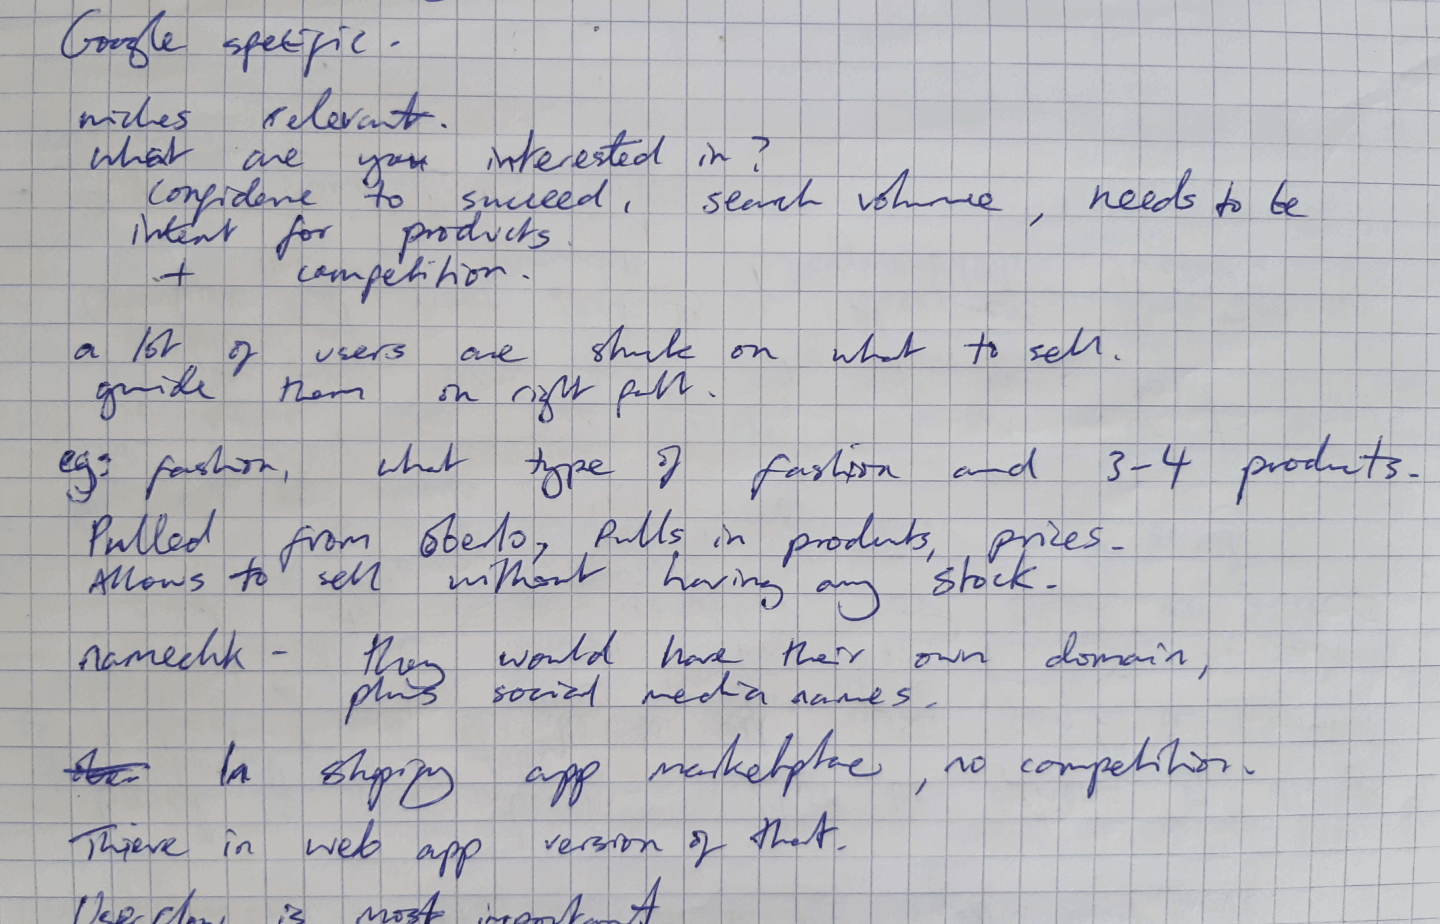 Google specific.
niches relevant.
what are you interested in?
confidence to succeed, search volume, needs to be
intent for products.
+ competition.
a lot of users are stuck on what to sell.
guide them on right path.
eg: fashion, what type of fashion and 3-4 products.
Pulled from Oberlo, Pulls in products, prices.
Allows to sell without having any stock.
namechk - they would have their own domain,
plus social media names.
In shopify app marketplace, no competition.
in web app version of that.
Userflow is most important